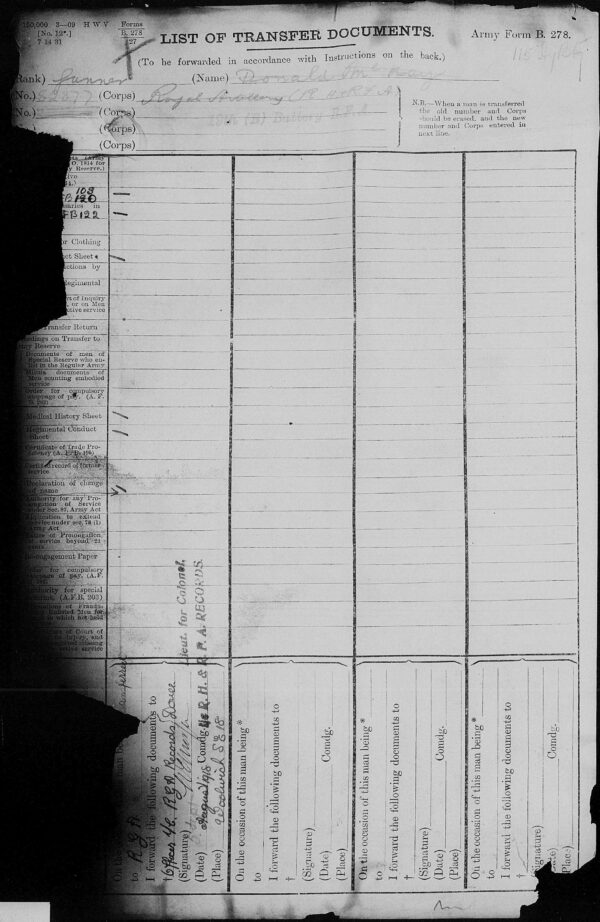 50,000 3—09 H W V Forms
[No. 12*.] B. 278
7 14 31 27
LIST OF TRANSFER DOCUMENTS.
Army Form B. 278.
(To be forwarded in accordance with Instructions on the back.)
Rank) Gunner (Name) Donald
(No.) (Corps) Royal Artillery (R H & R F A)
(No.) (Corps) (B) Battery R.F.A
(Corps)
(Corps)
N.B.—When a man is transferred
the old number and Corps
should be erased, and the new
number and Corps entered in
next line.
O. 1814 for
Reserve.)
109
FB 120
in
FB 122
or Clothing
Sheet
ctions by
Regimental
rt of Inquiry
or on Men
ctive service
Transfer Return
dings on Transfer to
Reserve
Documents of men of
Special Reserve who en-
list in the Regular Army
Militia documents of
Men counting embodied
service
Order for compulsory
stoppage of pay. (A. F.
Medical History Sheet
Regimental Conduct
Sheet
Certificate of Trade Pro-
ficiency
Certified record of former
service
Declaration of change
of name
Authority for any Pro-
longation of Service
under Sec. 87, Army Act
Application to extend
service under sec. 78 (1)
Army Act
Notice of Prolongation
of service beyond 21
years
Re-engagement Paper
Order for compulsory
stoppage of pay. (A.F.
Authority for special
(A.F.B. 203)
Enlisted Men for
in which not held
Court of
Inquiry, and
missing
active service
On the
to R G A
I forward the following documents to
Officer i/c R G A Records, Dover
(Signature)
Lieut. for Colonel.
(Date) August 1915 Comdg. i/c R. H. & R. F. A. RECORDS.
(Place) Woolwich SE 18
On the occasion of this man being*
to
I forward the following documents to
†
(Signature)
(Date) Comdg.
(Place)
On the occasion of this man being*
to
I forward the following documents to
†
(Signature)
(Date) Comdg.
(Place)
On the occasion of this man being*
to
I forward the following documents to
†
(Signature)
(Date) Comdg.
(Place)